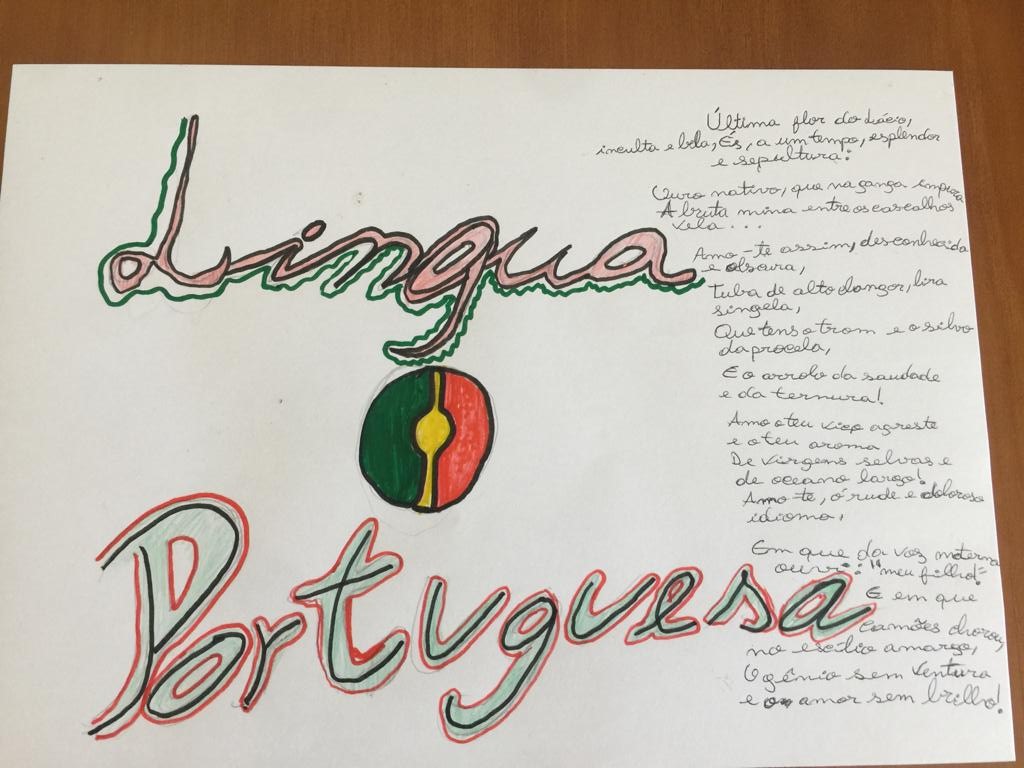 Lingua
Portuguesa
Última flor do Lácio,
inculta e bela, És, a um tempo, esplendor
e sepultura:
Ouro nativo, que na ganga impura
A bruta mina entre os cascalhos
vela...
Amo-te assim, desconhecida
e obscura,
Tuba de alto clangor, lira
singela,
Que tens o trom e o silvo
da procela,
E o arrolo da saudade
e da ternura!
Amo o teu viço agreste
e o teu aroma
De virgens selvas e
de oceano largo!
Amo-te, ó rude e doloroso
idioma,
Em que da voz materna
ouvi: "meu filho!"
E em que
Camões chorou,
no exílio amargo,
O gênio sem ventura
e o amor sem brilho!